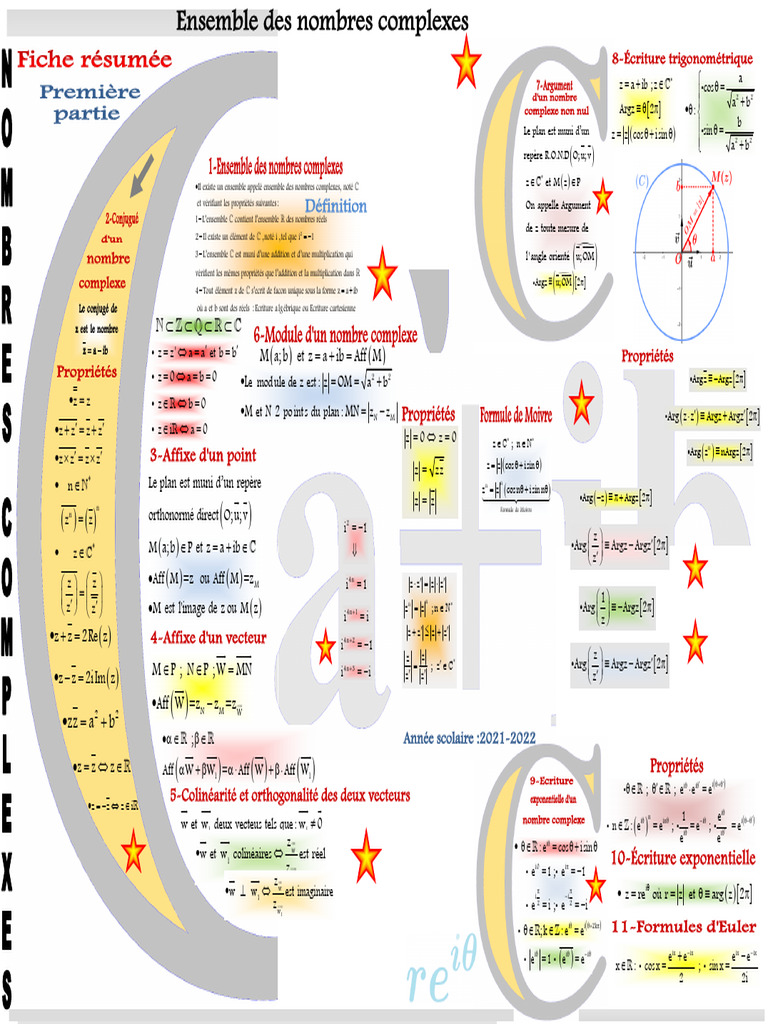 Ensemble des nombres complexes
NOMBRES COMPLEXES
Fiche résumée
Première
partie
1-Ensemble des nombres complexes
•Il existe un ensemble appelé ensemble des nombres complexes, noté C
et vérifiant les propriétés suivantes :
Définition
1–L'ensemble C contient l'ensemble R des nombres réels
2–Il existe un élément de C ,noté i ,tel que i² = −1
3–L'ensemble C est muni d'une addition et d'une multiplication qui
vérifient les mêmes propriétés que l'addition et la multiplication dans R
4–Tout élément z de C s'ecrit de facon unique sous la forme z = a + ib
où a et b sont des réels : Ecriture algébrique ou Ecriture cartesienne
N⊂Z⊂Q⊂R⊂C
• z = z' ⇔ a = a' et b = b'
• z = 0 ⇔ a = b = 0
• z∈R ⇔ b = 0
• z∈iR ⇔ a = 0
2-Conjugué
d'un
nombre
complexe
Le conjugé de
z est le nombre
z̅ = a – ib
Propriétés
•z̿ = z
•z + z'̅ = z̅ + z̅'
•z × z'̅ = z̅ × z̅'
• n∈N*
(zⁿ)̅ = (z̅)ⁿ
• z∈C*
(z/z')̅ = (z̅/z̅')
•z + z̅ = 2Re(z)
•z − z̅ = 2i Im(z)
•zz̅ = a² + b²
•z = z̅ ⇔ z∈R
•z = −z̅ ⇔ z∈iR
3-Affixe d'un point
Le plan est muni d'un repère
orthonormé direct (O; u⃗; v⃗)
M(a; b)∈P et z = a + ib∈C
•Aff(M) = z ou Aff(M) = z_M
•M est l'image de z ou M(z)
4-Affixe d'un vecteur
M∈P ; N∈P ; W⃗ = MN⃗
•Aff(W⃗) = z_N − z_M = z_W⃗
•α∈R ; β∈R
Aff(αW⃗ + βW⃗₁) = α·Aff(W⃗) + β·Aff(W⃗₁)
5-Colinéarité et orthogonalité des deux vecteurs
w⃗ et w⃗₁ deux vecteurs tels que : w⃗₁ ≠ 0⃗
•w⃗ et w⃗₁ colinéaires ⇔ z_w⃗/z_w⃗₁ est réel
•w⃗ ⊥ w⃗₁ ⇔ z_w⃗/z_w⃗₁ est imaginaire
6-Module d'un nombre complexe
M(a; b) et z = a + ib = Aff(M)
•Le module de z est : |z| = OM = √(a² + b²)
•M et N 2 points du plan : MN = |z_N − z_M|
i² = −1
⇓
i⁴ⁿ = 1
i⁴ⁿ⁺¹ = i
i⁴ⁿ⁺² = −1
i⁴ⁿ⁺³ = −i
Propriétés
|z| = 0 ⇔ z = 0
|z| = √(zz̅)
|z| = |z̅|
|z·z'| = |z|·|z'|
|zⁿ| = |z|ⁿ ; n∈N*
|z + z'| ≤ |z| + |z'|
|z/z'| = |z|/|z'| ; z'∈C*
Formule de Moivre
z∈C* ; n∈N*
z = |z|(cosθ + i sinθ)
zⁿ = |z|ⁿ(cos nθ + i sin nθ)
Formule de Moivre
7-Argument
d'un nombre
complexe non nul
Le plan est muni d'un
repère R.O.N.D (O; u⃗; v⃗)
z∈C* et M(z)∈P
On appelle Argument
de z toute mesure de
l'angle orienté (u⃗; OM⃗)
•Argz ≡ (u⃗; OM⃗)[2π]
8-Écriture trigonométrique
z = a + ib ; z∈C*
Argz ≡ θ[2π]
z = |z|(cosθ + i sinθ)
•θ :
•cosθ = a/√(a² + b²)
•sinθ = b/√(a² + b²)
(C)
b
M(z)
OM = |z|
v⃗
θ
O
u⃗
a
Propriétés
•Argz̅ ≡ −Argz[2π]
•Arg(z·z') ≡ Argz + Argz'[2π]
•Arg(zⁿ) ≡ nArgz[2π]
•Arg(−z) ≡ π + Argz[2π]
•Arg(z/z') ≡ Argz − Argz'[2π]
•Arg(1/z) ≡ −Argz[2π]
•Arg(z/z') ≡ Argz − Argz'[2π]
a+ib
Année scolaire :2021-2022
9-Ecriture
exponentielle d'un
nombre complexe
• θ∈R : e^(iθ) = cosθ + i sinθ
• e^(i0) = 1 ; • e^(iπ) = −1
• e^(iπ/2) = i ; • e^(−iπ/2) = −i
• θ∈R; k∈Z : e^(iθ) = e^(i(θ+2kπ))
• |e^(iθ)| = 1 • (e^(iθ))̅ = e^(−iθ)
re^(iθ)
Propriétés
•θ∈R ; θ'∈R ; e^(iθ)·e^(iθ') = e^(i(θ+θ'))
• n∈Z : (e^(iθ))ⁿ = e^(inθ) ; • 1/e^(iθ) = e^(−iθ) ; • e^(iθ)/e^(iθ') = e^(i(θ−θ'))
10-Écriture exponentielle
• z = re^(iθ) où r = |z| et θ ≡ arg(z)[2π]
11-Formules d'Euler
x∈R : • cosx = (e^(ix) + e^(−ix))/2 ; • sinx = (e^(ix) − e^(−ix))/2i